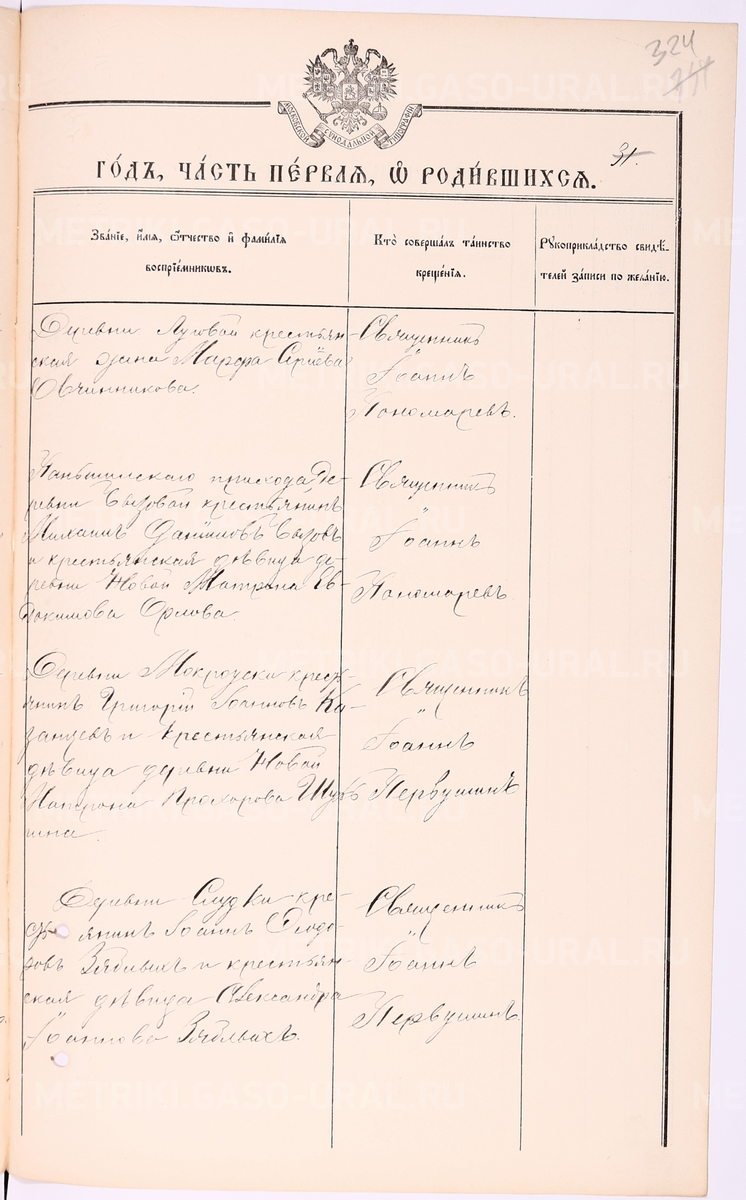 324
31.
МОСКОВСКОЙ СѴНОДАЛЬНОЙ ТИПОГРАФІИ
ГО́ДЪ, ЧА́СТЬ ПЕ́РВАЯ, Ѡ РОДИ́ВШИХСЯ.
Зва́нїе, и́мѧ, ѻ҆́тчество и҆ фамі́лїѧ
воспрїе́мникѡвъ.
Кто̀ соверша́лъ та́инство
креще́нїѧ.
Рꙋкоприкла́дство свидѣ́-
телей за́писи по жела́нїю.
Деревни Луговой крестьян-
ская жена Марѳа
Овчинникова.
Священникъ
Іоаннъ
Пономаревъ.
прихода де-
ревни Быковой крестьянинъ
Михаилъ Данииловъ Быковъ
и крестьянская дѣвица де-
ревни Новой Матрона Ев-
докимова Орлова.
Священникъ
"
Іоаннъ
Пономаревъ
Деревни кресть-
янинъ Григорій Іоанновъ Ка-
занцевъ и крестьянская
дѣвица деревни Новой
Матрона Прохорова
шина.
Священникъ
"
Іоаннъ
Первушинъ
Деревни Слудки кре-
стьянинъ Іоаннъ Ѳеодо-
ровъ Зяблыхъ и крестьян-
ская дѣвица Александра
Іоаннова Зяблыхъ.
Священникъ
"
Іоаннъ
Первушинъ.
METRIKI.GASO-URAL.RU